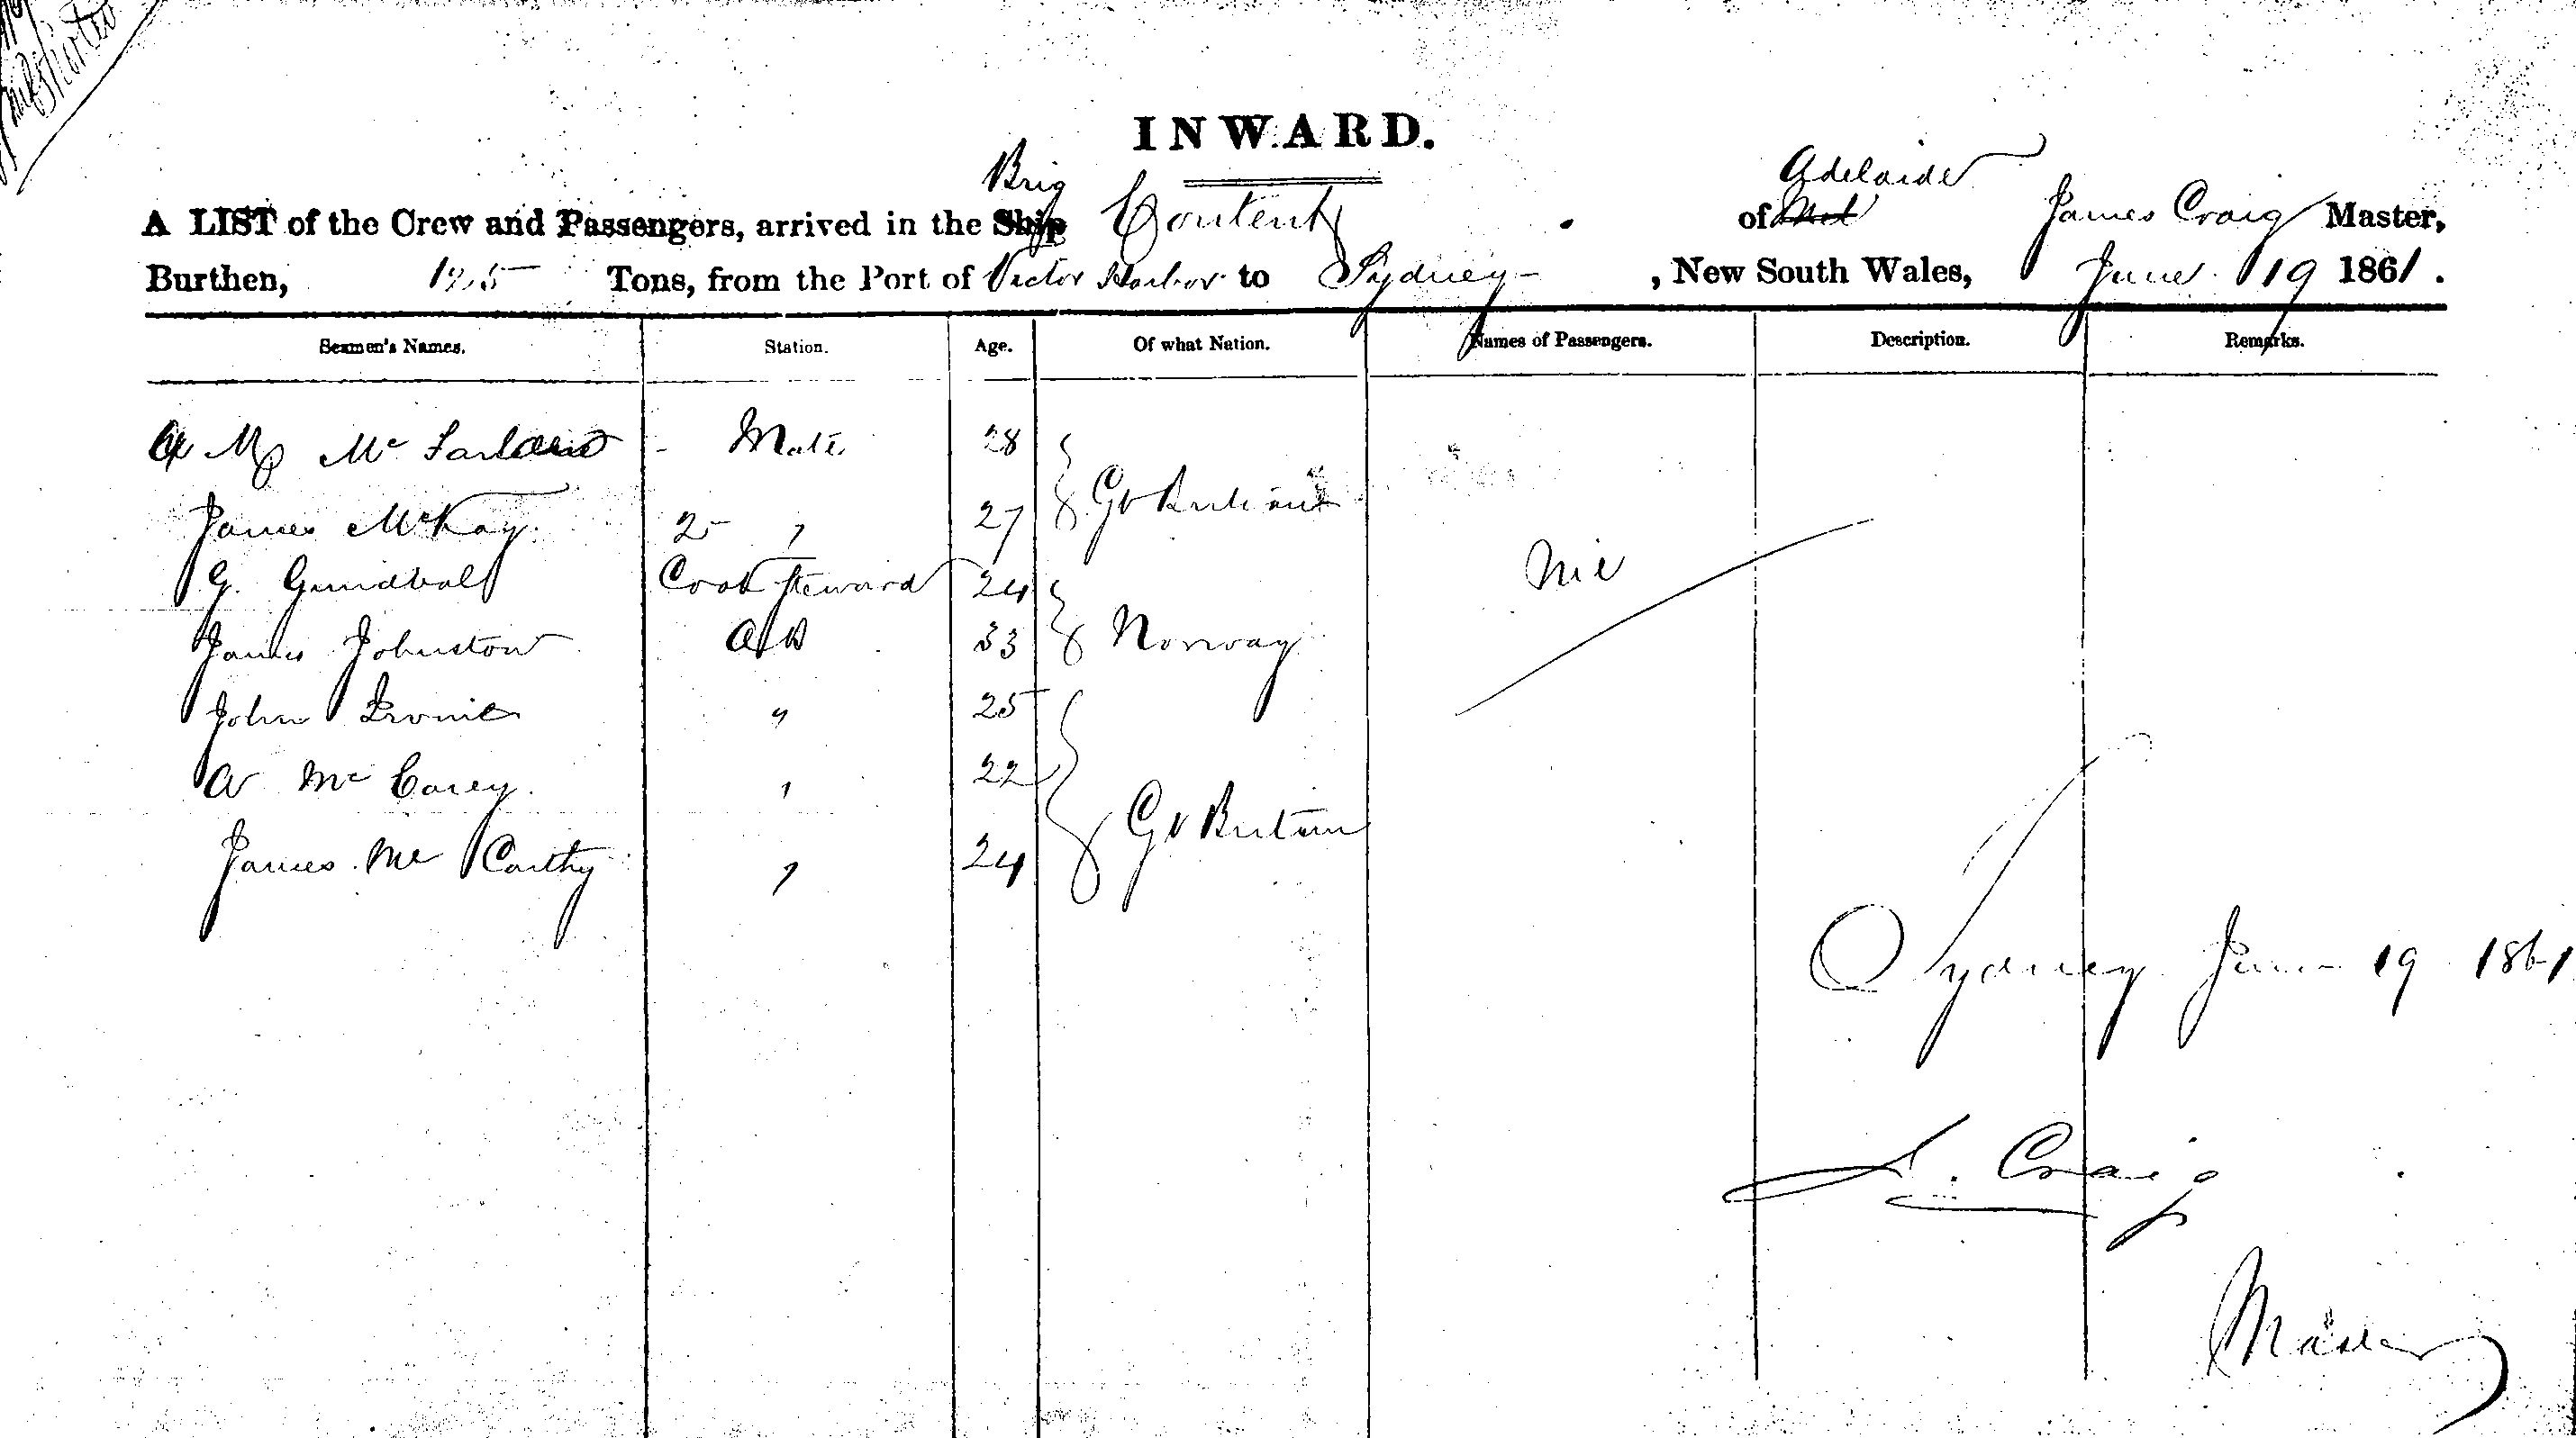 INWARD.
Brig Adelaide
A LIST of the Crew and Passengers, arrived in the Ship Content of James Craig Master,
Burthen, 125 Tons, from the Port of Victor Harbor to Sydney , New South Wales, June 19 1861.
Seamen's Names. Station. Age. Of what Nation. Names of Passengers. Description. Remarks.
Mc Farland Mate 28
Gt Britain
James McKay 2 " 27
Nil
G. Cook Steward 24
James Johnston AB 33 Norway
John " 25
A Mc Carey " 22
Gt Britain
James Mc Carthy " 24
Sydney June 19 1861
J. Craig
Master